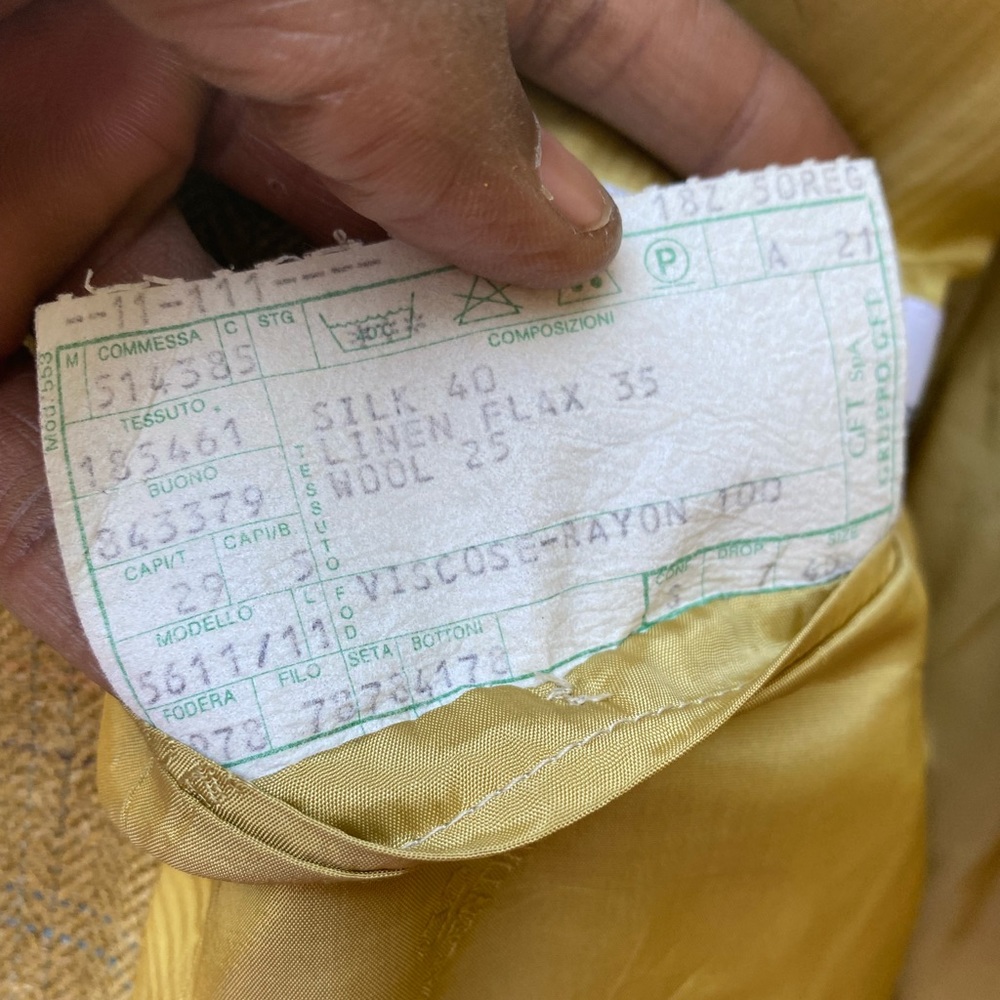 18Z 50REG
--11-111----
M COMMESSA C STG
COMPOSIZIONI
P
A 21
514385
TESSUTO
185461
BUONO
843379
CAPI/T CAPI/B.
29 5
MODELLO L
5611/11
FODERA FILO SETA BOTTONI
TESSUTO
SILK 40
LINEN FLAX 35
WOOL 25
FOD
VISCOSE-RAYON 100
DROP SIZE
7
GFT SpA
GRUPPO GFT
Mod. 553